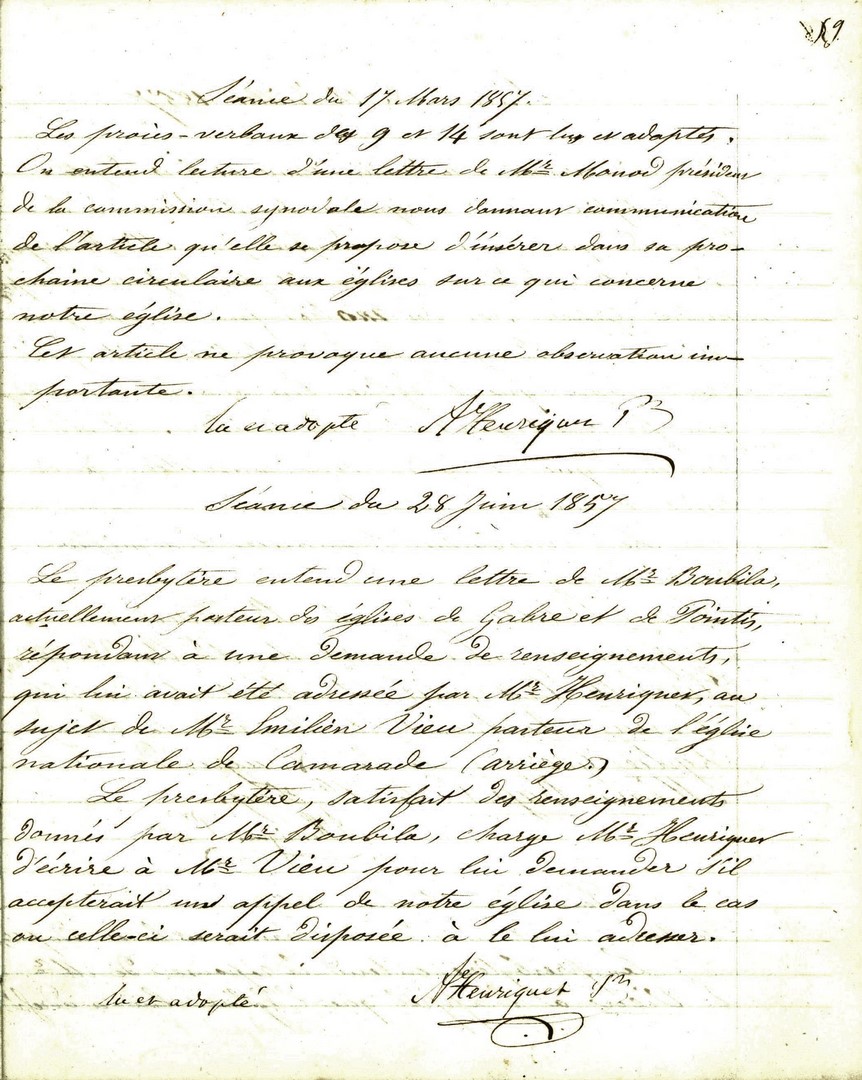 69
Séance du 17 Mars 1857.
Les procès-verbaux des 9 et 14 sont lus et adoptés.
On entend lecture d'une lettre de Mr Monod président
de la commission synodale nous donnant communication
de l'article qu'elle se propose d'insérer dans sa pro-
chaine circulaire aux églises sur ce qui concerne
notre église.
Cet article ne provoque aucune observation im-
portante.
lu et adopté Ate Henriquet Pr
Séance du 28 Juin 1857
Le presbytère entend une lettre de Mr Boubila,
actuellement pasteur des églises de Gabre et de Pointis,
répondant à une demande de renseignements,
qui lui avait été adressée par Mr Henriquet, au
sujet de Mr Emilien Vieu pasteur de l'église
nationale de Camarade (arriège.)
Le presbytère, satisfait des renseignements
donnés par Mr Boubila, charge Mr Henriquet
d'écrire à Mr Vieu pour lui demander s'il
accepterait un appel de notre église dans le cas
ou celle-ci serait disposée à le lui adresser.
lu et adopté Ate Henriquet Pr